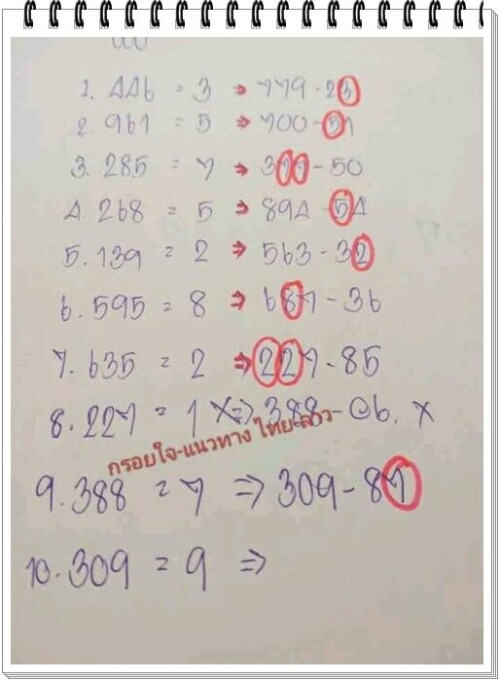 1. 446 = 3 → 779 - 23
2. 961 = 5 → 700 - 51
3. 285 = 7 → 377 - 50
4. 268 = 5 → 894 - 54
5. 139 = 2 → 563 - 32
6. 595 = 8 → 687 - 36
7. 635 = 2 ⇒ 227 - 85
8. 227 = 1 x ⇒ 388 - 06. x
กรอยใจ-แนวทาง ไทย-ลาว
9. 388 = 7 ⇒ 309 - 87
10. 309 = 9 ⇒